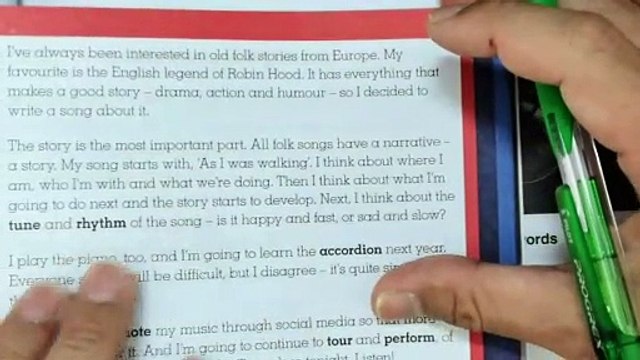 I've always been interested in old folk stories from Europe. My
favourite is the English legend of Robin Hood. It has everything that
makes a good story – drama, action and humour – so I decided to
write a song about it.
The story is the most important part. All folk songs have a narrative –
a story. My song starts with, 'As I was walking'. I think about where I
am, who I'm with and what we're doing. Then I think about what I'm
going to do next and the story starts to develop. Next, I think about the
tune and rhythm of the song – is it happy and fast, or sad and slow?
I play the piano, too, and I'm going to learn the accordion next year.
be difficult, but I disagree – it's quite
my music through social media so
it. And I'm going to continue to tour and perform, of
Listen!
ords